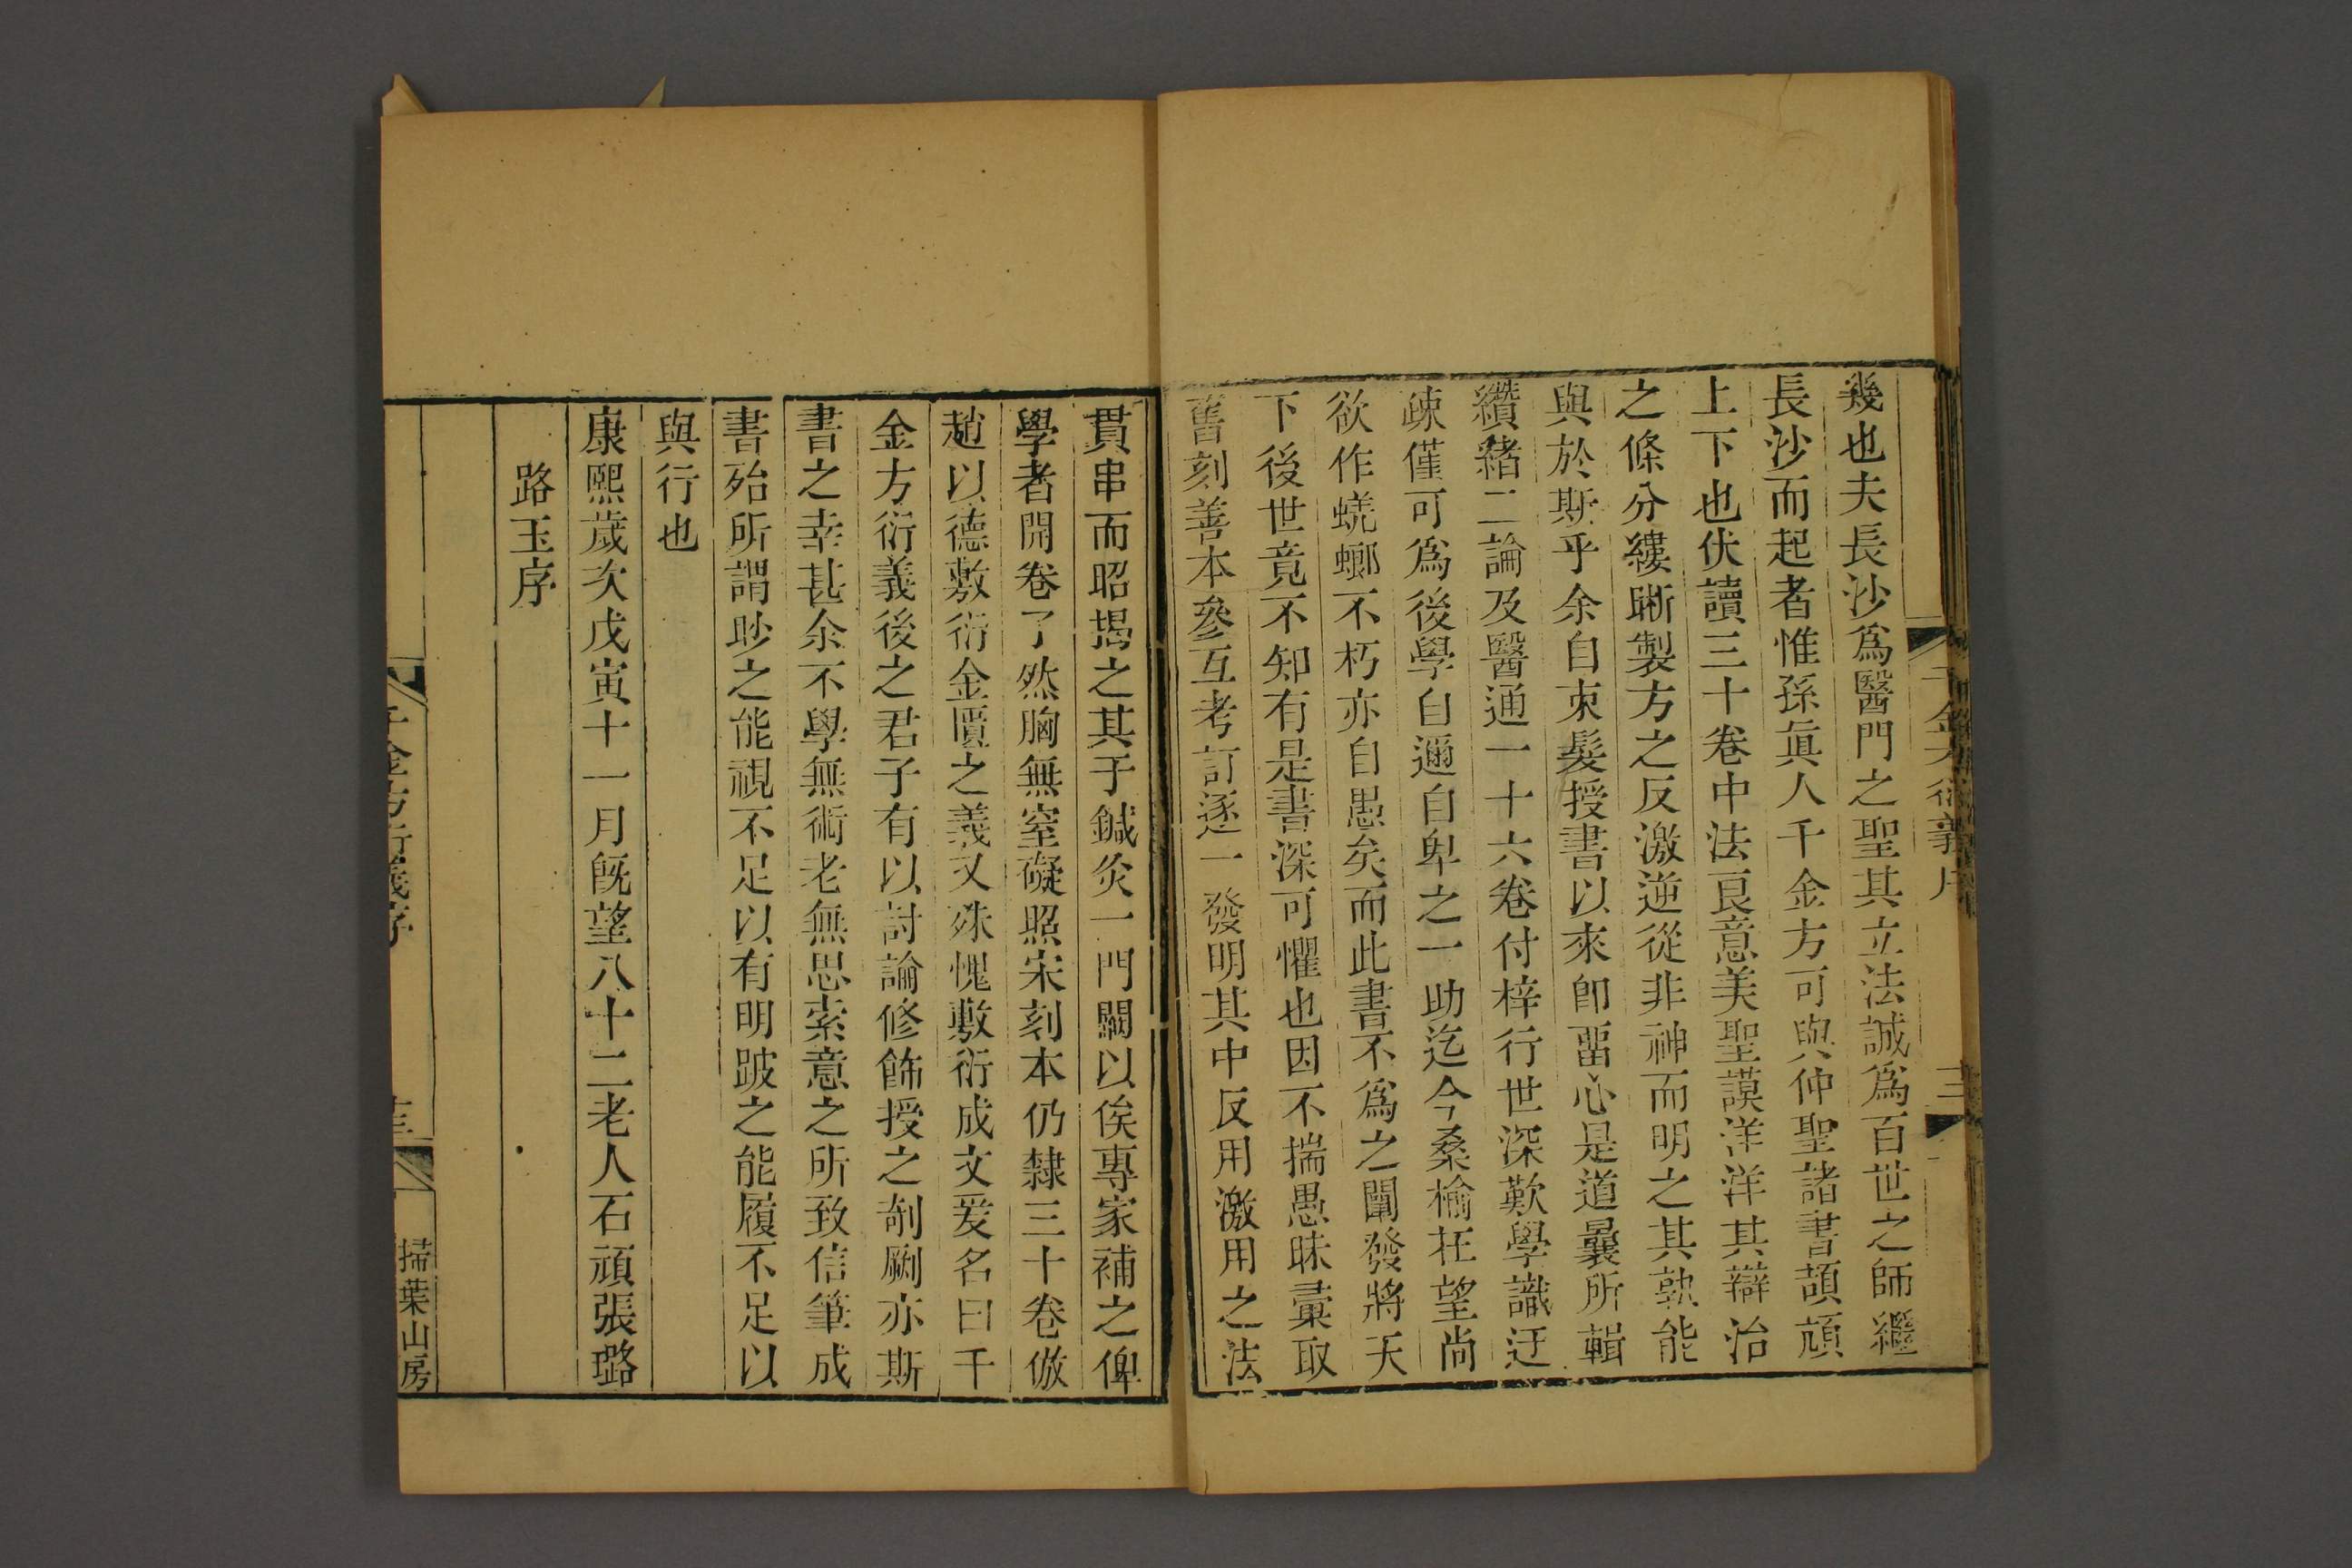 千金方衍義序
三
幾也夫長沙爲醫門之聖其立法誠爲百世之師繼
長沙而起者惟孫眞人千金方可與仲聖諸書頡頏
上下也伏讀三十卷中法良意美聖謨洋洋其辯治
之條分縷晰製方之反激逆從非神而明之其孰能
與於斯乎余自束髮授書以來卽畱心是道曩所輯
纘緒二論及醫通一十六卷付梓行世深歎學識迂
疎僅可爲後學自邇自卑之一助迄今桑榆在望尚
欲作蜣螂不朽亦自愚矣而此書不爲之闡發將天
下後世竟不知有是書深可懼也因不揣愚昧彙取
舊刻善本參互考訂逐一發明其中反用激用之法
貫串而昭揭之其于鍼灸一門闕以俟專家補之俾
學者開卷了然胸無窒礙照宋刻本仍隸三十卷倣
趙以德敷衍金匱之義又殊愧敷衍成文爰名曰千
金方衍義後之君子有以討論修飾授之剞劂亦斯
書之幸甚余不學無術老無思索意之所致信筆成
書殆所謂眇之能視不足以有明跛之能履不足以
與行也
康熙歲次戊寅十一月旣望八十二老人石頑張璐
路玉序
千金方衍義序
三
掃葉山房